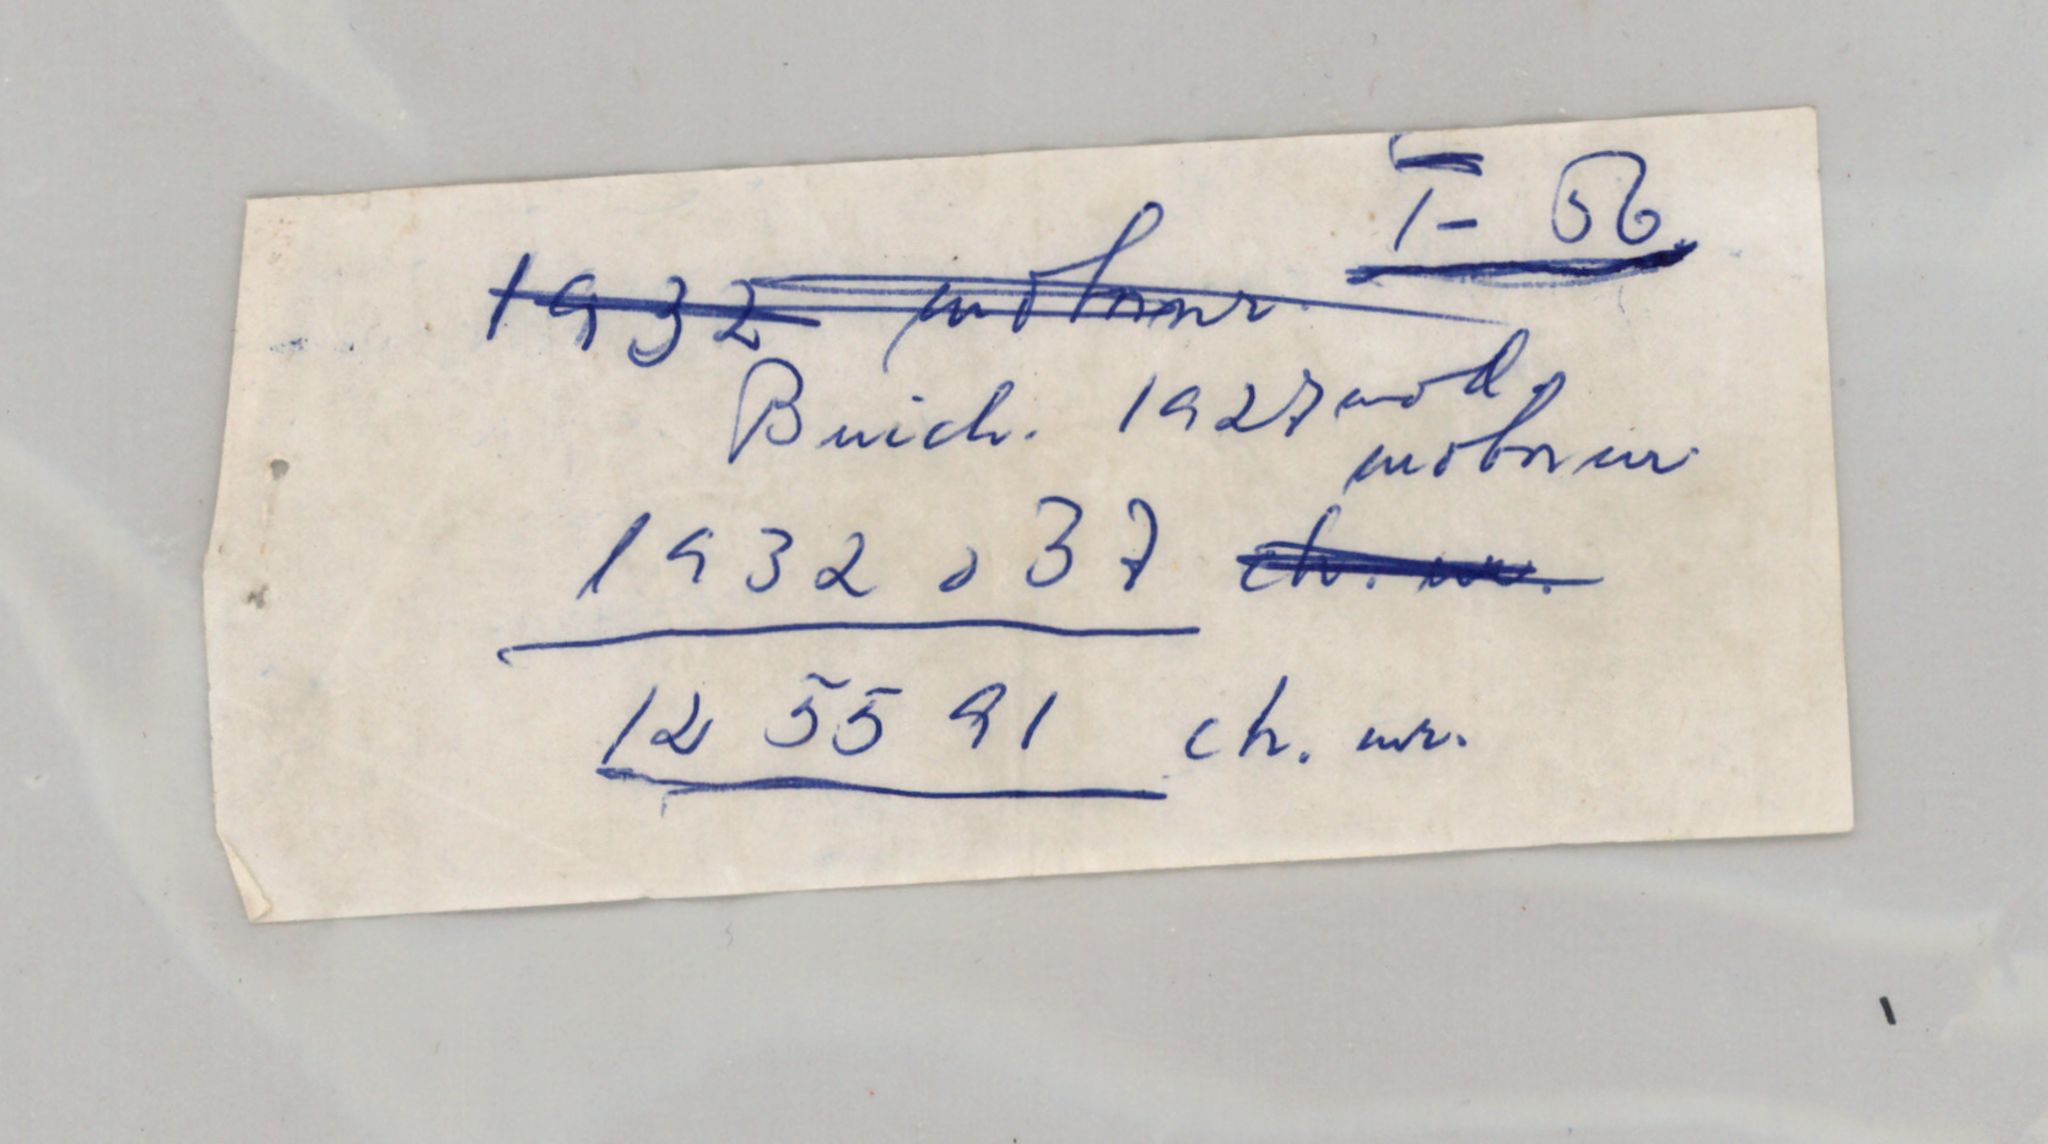 T- 56
1932 motornr.
Buick. 1927 mod.
motornr
1932037 ch. nr.
12 55 91 ch. nr.